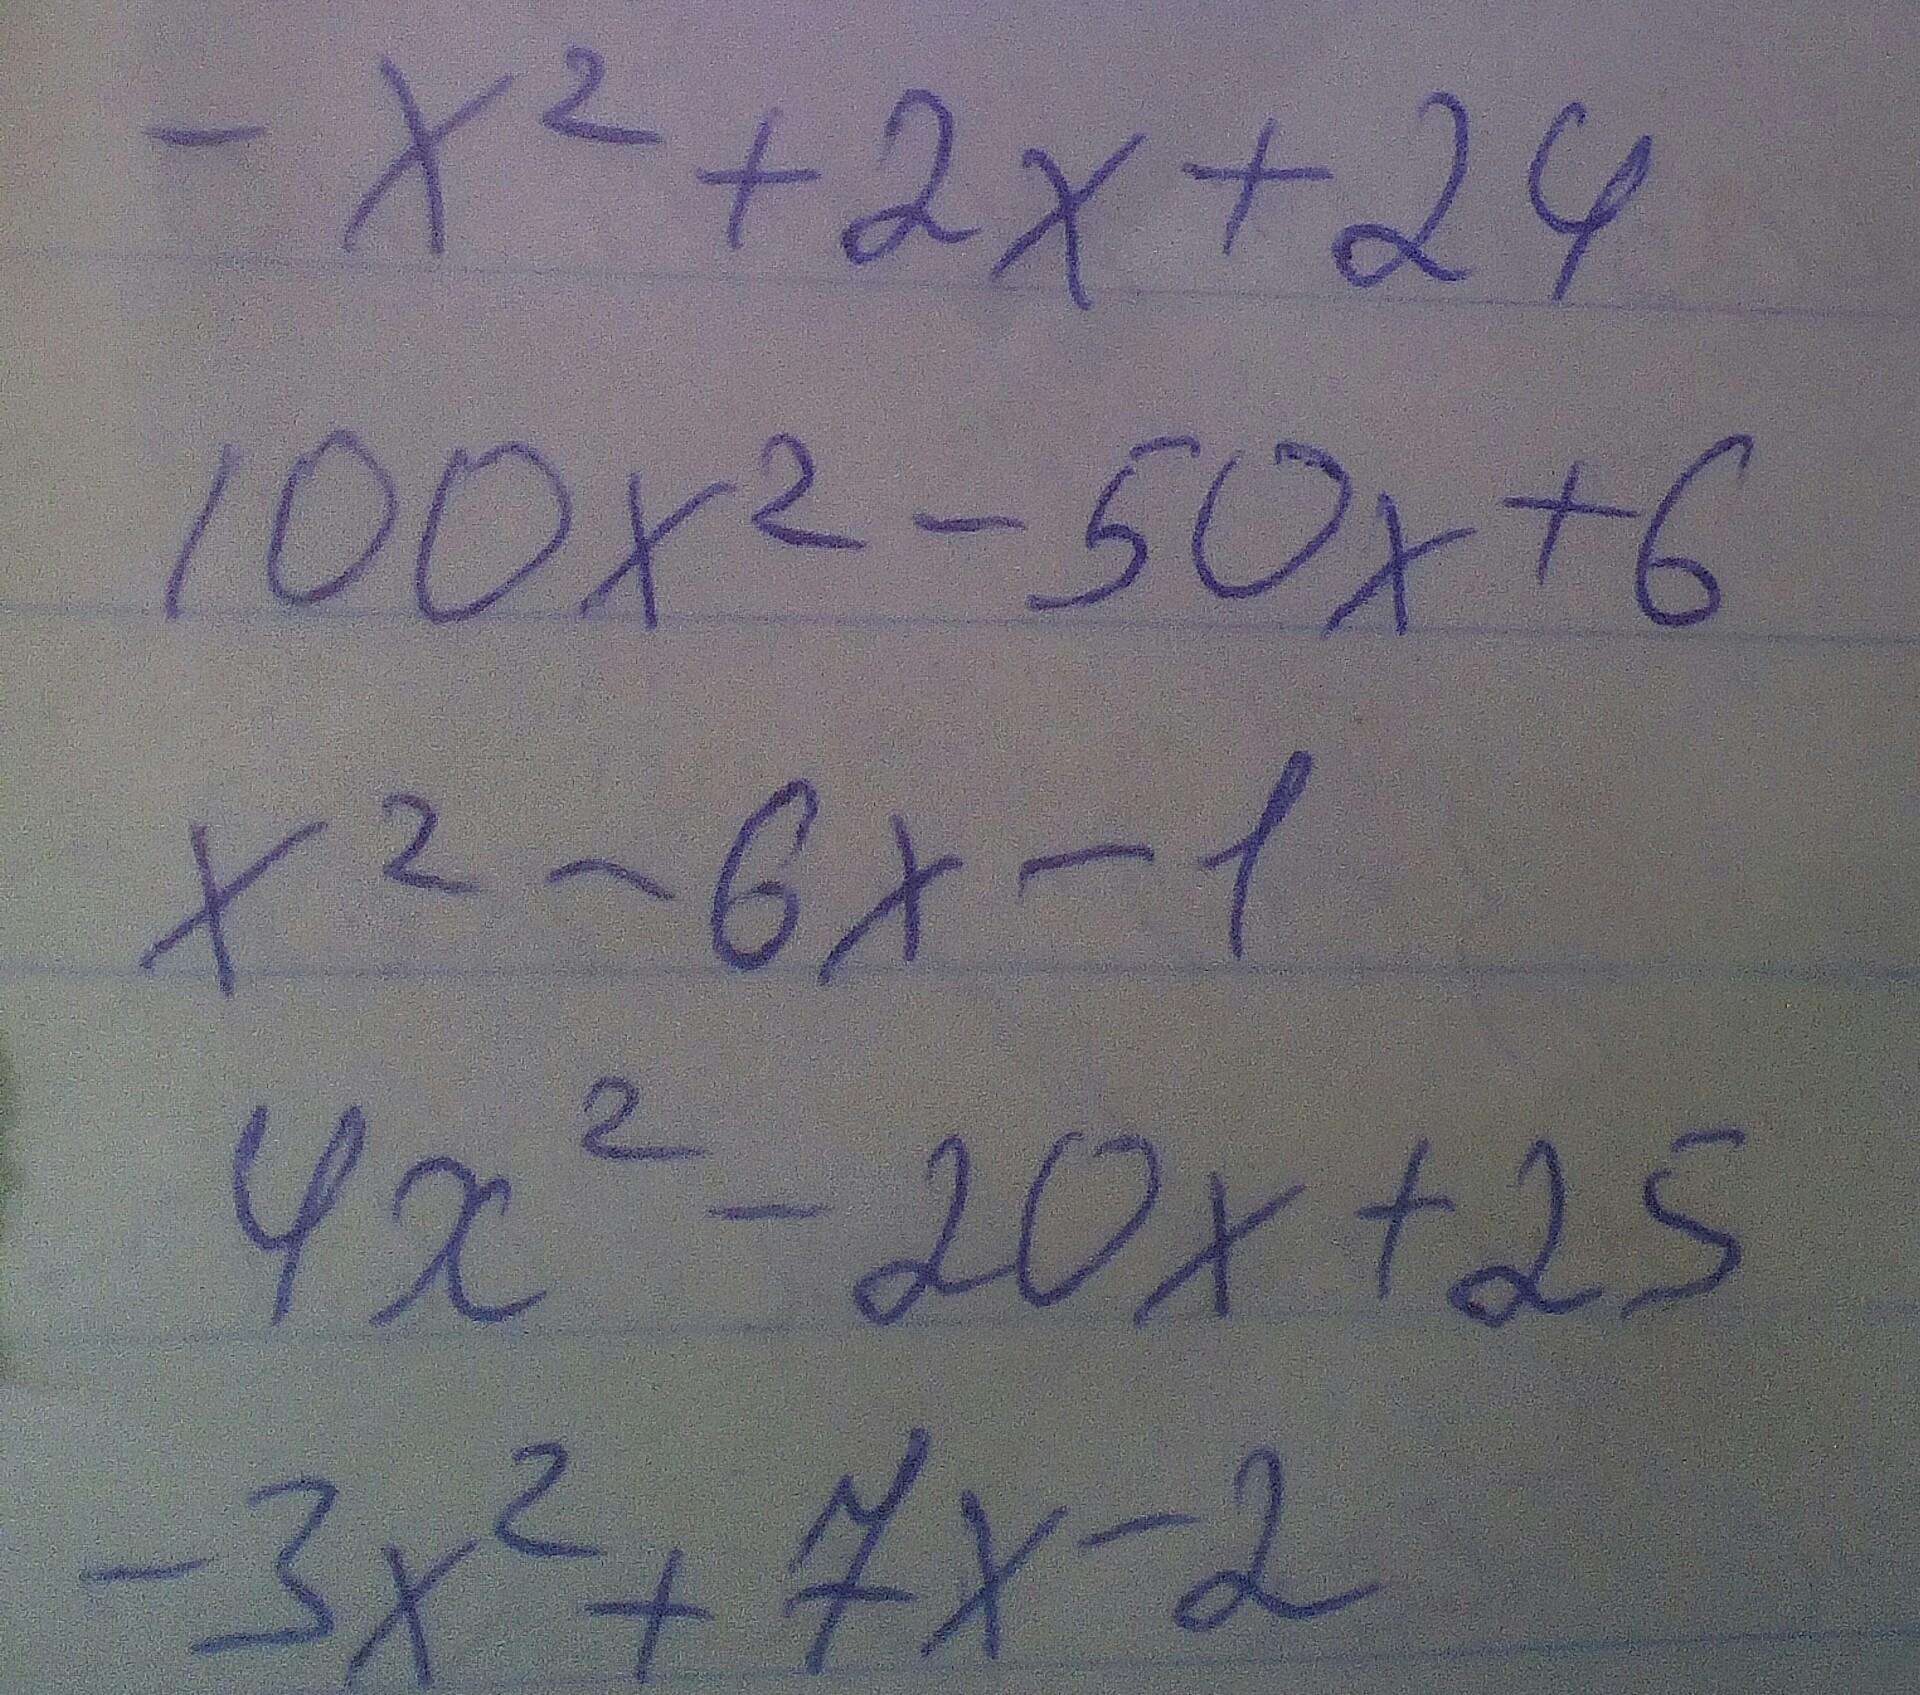 -x²+2x+24
100x²-50x+6
x²-6x-1
4x²-20x+25
-3x²+7x-2